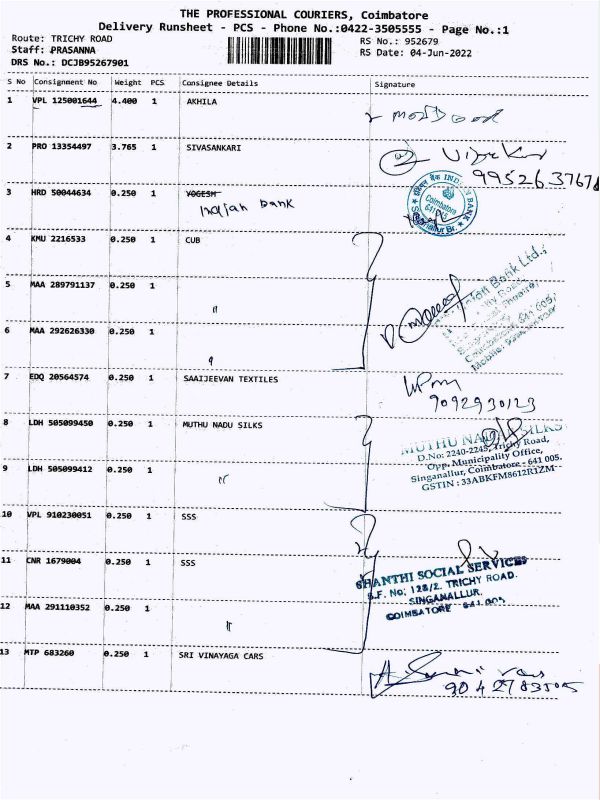 THE PROFESSIONAL COURIERS, Coimbatore
Delivery Runsheet - PCS - Phone No.:0422-3505555 - Page No.:1
Route: TRICHY ROAD
RS No.: 952679
Staff: PRASANNA
RS Date: 04-Jun-2022
DRS No.: DCJB95267901
S No Consignment No Weight PCS Consignee Details Signature
1 VPL 125001644 4.400 1 AKHILA
2 PRO 13354497 3.765 1 SIVASANKARI
3 HRD 50044634 0.250 1 YOGESH
Indian bank
Coimbatore
641 005
4 KMU 2216533 0.250 1 CUB
5 MAA 289791137 0.250 1 "
6 MAA 292626330 0.250 1 "
7 EDQ 20564574 0.250 1 SAAIJEEVAN TEXTILES
9092930123
8 LDH 505099450 0.250 1 MUTHU NADU SILKS
MUTHU NADU SILKS
D.No: 2240-2245, Trichy Road,
Opp. Municipality Office,
Singanallur, Coimbatore - 641 005.
GSTIN : 33ABKFM8612R1ZM
9 LDH 505099412 0.250 1 "
10 VPL 910230051 0.250 1 SSS
11 CNR 1679004 0.250 1 SSS
SHANTHI SOCIAL SERVICES
S.F. No: 128/2, TRICHY ROAD.
SINGANALLUR.
COIMBATORE - 641 005
12 MAA 291110352 0.250 1 "
13 MTP 683260 0.250 1 SRI VINAYAGA CARS